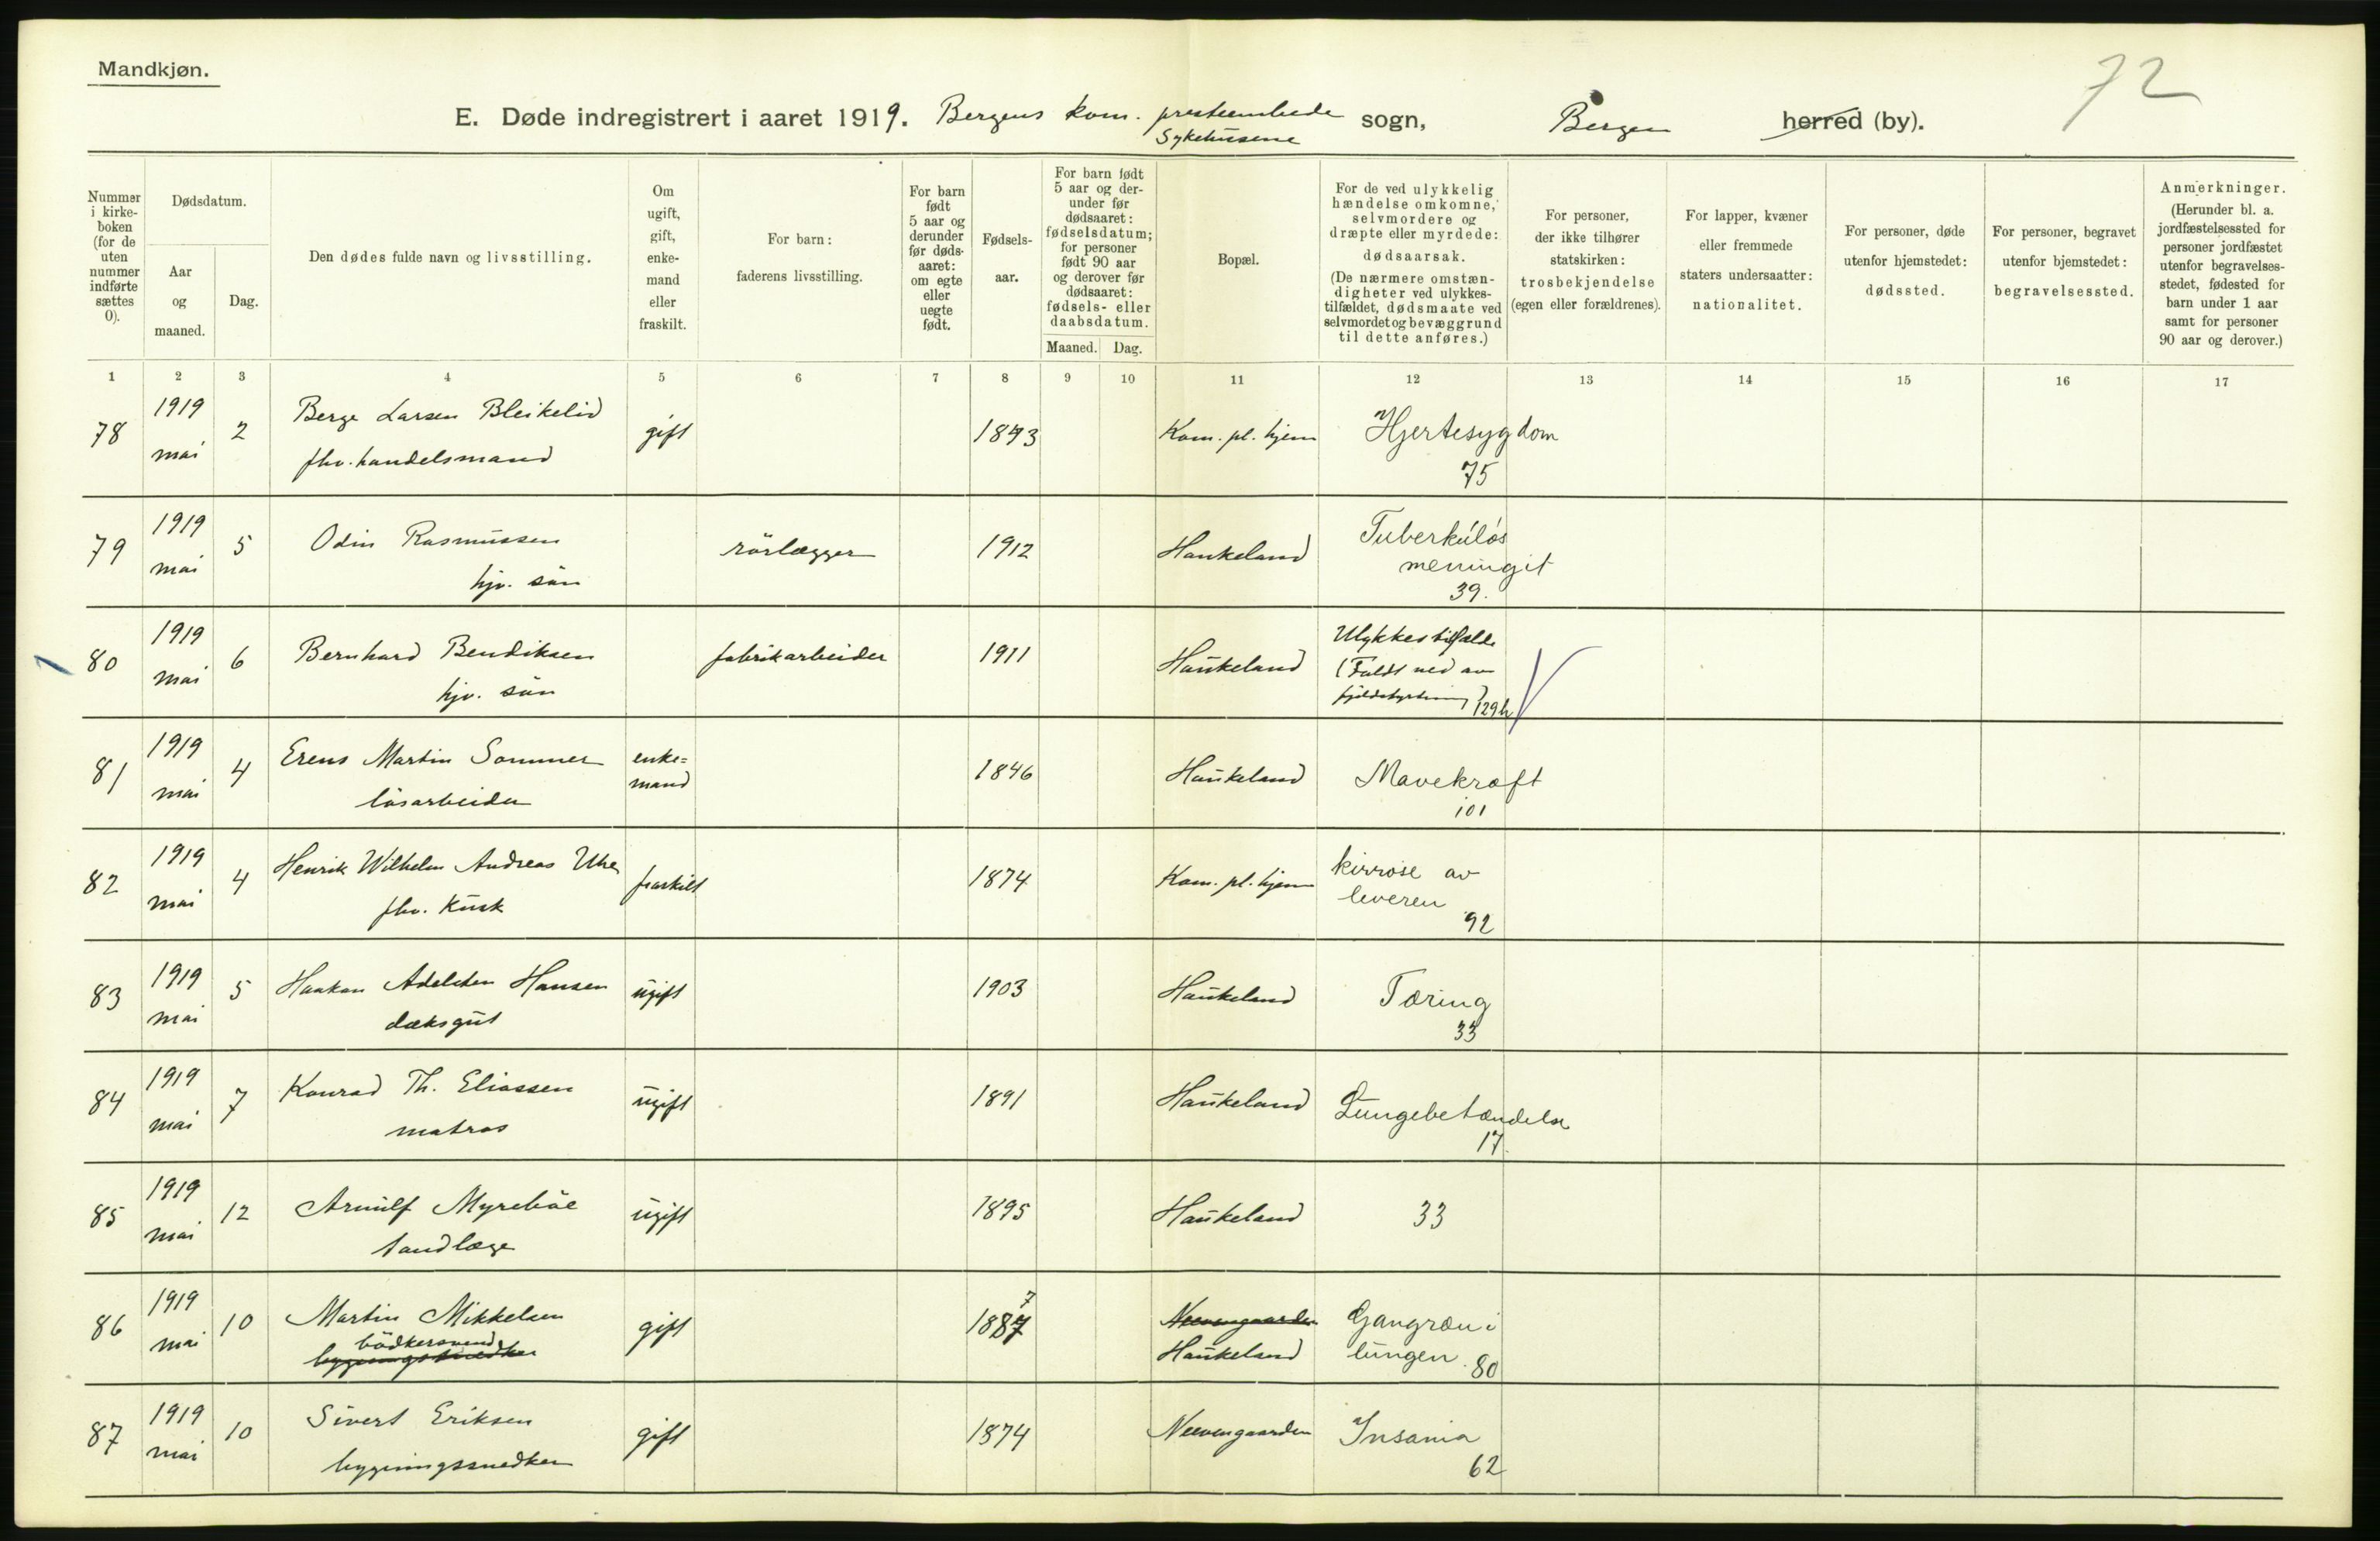 Mandkjøn.
72
E. Døde indregistrert i aaret 1919. Bergens kom. presteembede Sykehusene sogn, Bergen herred (by).
Nummer i kirkeboken (for de uten nummer indførte sættes 0).
Dødsdatum.
Aar og maaned.
Dag.
Den dødes fulde navn og livsstilling.
Om ugift, gift, enkemand eller fraskilt.
For barn: faderens livsstilling.
For barn født 5 aar og derunder før dødsaaret: om egte eller uegte født.
Fødselsaar.
For barn født 5 aar og derunder før dødsaaret: fødselsdatum; for personer født 90 aar og derover før dødsaaret: fødsels- eller daabsdatum.
Maaned. Dag.
Bopæl.
For de ved ulykkelig hændelse omkomne, selvmordere og dræpte eller myrdede: dødsaarsak. (De nærmere omstændigheter ved ulykkestilfældet, dødsmaate ved selvmordet og bevæggrund til dette anføres.)
For personer, der ikke tilhører statskirken: trosbekjendelse (egen eller forældrenes).
For lapper, kvæner eller fremmede staters undersaatter: nationalitet.
For personer, døde utenfor hjemstedet: dødssted.
For personer, begravet utenfor hjemstedet: begravelsessted.
Anmerkninger. (Herunder bl. a. jordfæstelsessted for personer jordfæstet utenfor begravelsesstedet, fødested for barn under 1 aar samt for personer 90 aar og derover.)
1 2 3 4 5 6 7 8 9 10 11 12 13 14 15 16 17
78 1919 mai 2 Berge Larsen Bleikelid fhv. handelsmand gift 1843 Kom. pl. hjem Hjertesygdom 75
79 1919 mai 5 Odin Rasmussen hjv. sön rörlægger 1912 Haukeland Tuberkulös meningit 39.
80 1919 mai 6 Bernhard Bendiksen hjv. sön fabrikarbeider 1911 Haukeland Ulykkestilfælde (Faldt ned av fjeldstyrtning) 129h
81 1919 mai 4 Erens Martin Sommer lösarbeider enke=mand 1846 Haukeland Mavekræft 101
82 1919 mai 4 Henrik Wilhelm Andreas fhv. Kusk fraskilt 1874 Kom. pl. hjem kirrose av leveren 92
83 1919 mai 5 Haakon Adelsten Hansen dæksgut ugift 1903 Haukeland Tæring 33
84 1919 mai 7 Konrad Th. Eliassen matros ugift 1891 Haukeland Lungebetændelse 17.
85 1919 mai 12 Arnulf Myreböe tandlæge ugift 1895 Haukeland 33
86 1919 mai 10 Martin Mikkelsen bödkersvend bygningssnedker gift 1887 7 Neevengaarden Haukeland Gangræn i lungen. 80
87 1919 mai 10 Sivert Eriksen bygningssnedker gift 1874 Neevengaarden Insania 62